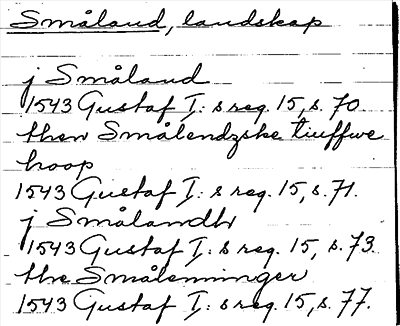 Småland, landskap
j Småland
1543 Gustaf I: s reg. 15, s. 70.
then Smålendzske tiuffwe
hoop
1543 Gustaf I: s reg. 15, s. 71.
j Smålandh
1543 Gustaf I: s reg. 15, s. 73
the Småleninger
1543 Gustaf I: s reg. 15, s. 77.